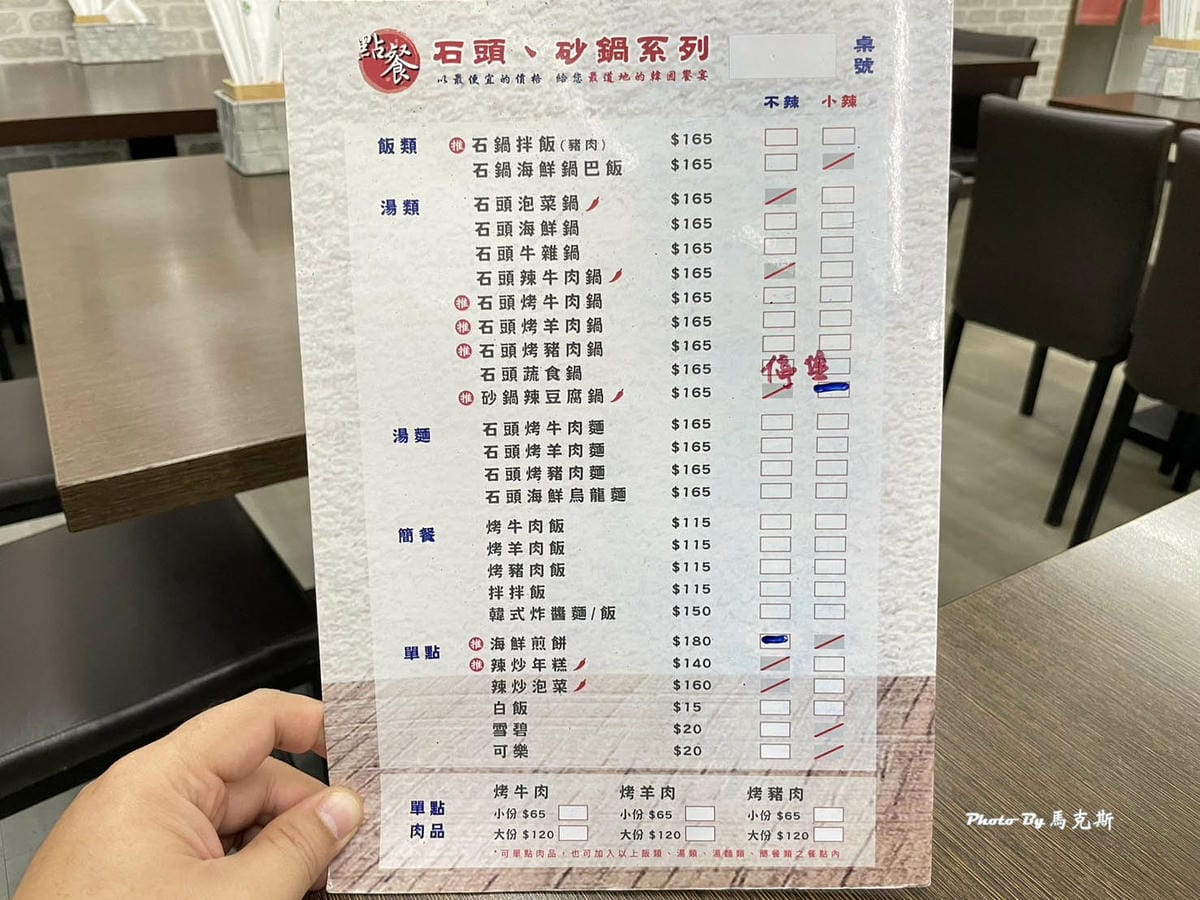 點餐 石頭、砂鍋系列 桌號
以最便宜的價格 給您最道地的韓國饗宴
不辣 小辣
飯類 推 石鍋拌飯(豬肉) $165
石鍋海鮮鍋巴飯 $165
湯類 石頭泡菜鍋 $165
石頭海鮮鍋 $165
石頭牛雜鍋 $165
石頭辣牛肉鍋 $165
推 石頭烤牛肉鍋 $165
推 石頭烤羊肉鍋 $165
推 石頭烤豬肉鍋 $165
石頭蔬食鍋 $165 停售
推 砂鍋辣豆腐鍋 $165
湯麵 石頭烤牛肉麵 $165
石頭烤羊肉麵 $165
石頭烤豬肉麵 $165
石頭海鮮烏龍麵 $165
簡餐 烤牛肉飯 $115
烤羊肉飯 $115
烤豬肉飯 $115
拌拌飯 $115
韓式炸醬麵/飯 $150
單點 推 海鮮煎餅 $180
推 辣炒年糕 $140
辣炒泡菜 $160
白飯 $15
雪碧 $20
可樂 $20
烤牛肉 烤羊肉 烤豬肉
單點 小份 $65 小份 $65 小份 $65
肉品 大份 $120 大份 $120 大份 $120
*可單點肉品，也可加入以上飯類、湯類、湯麵類、簡餐類之餐點內
Photo By 馬克斯